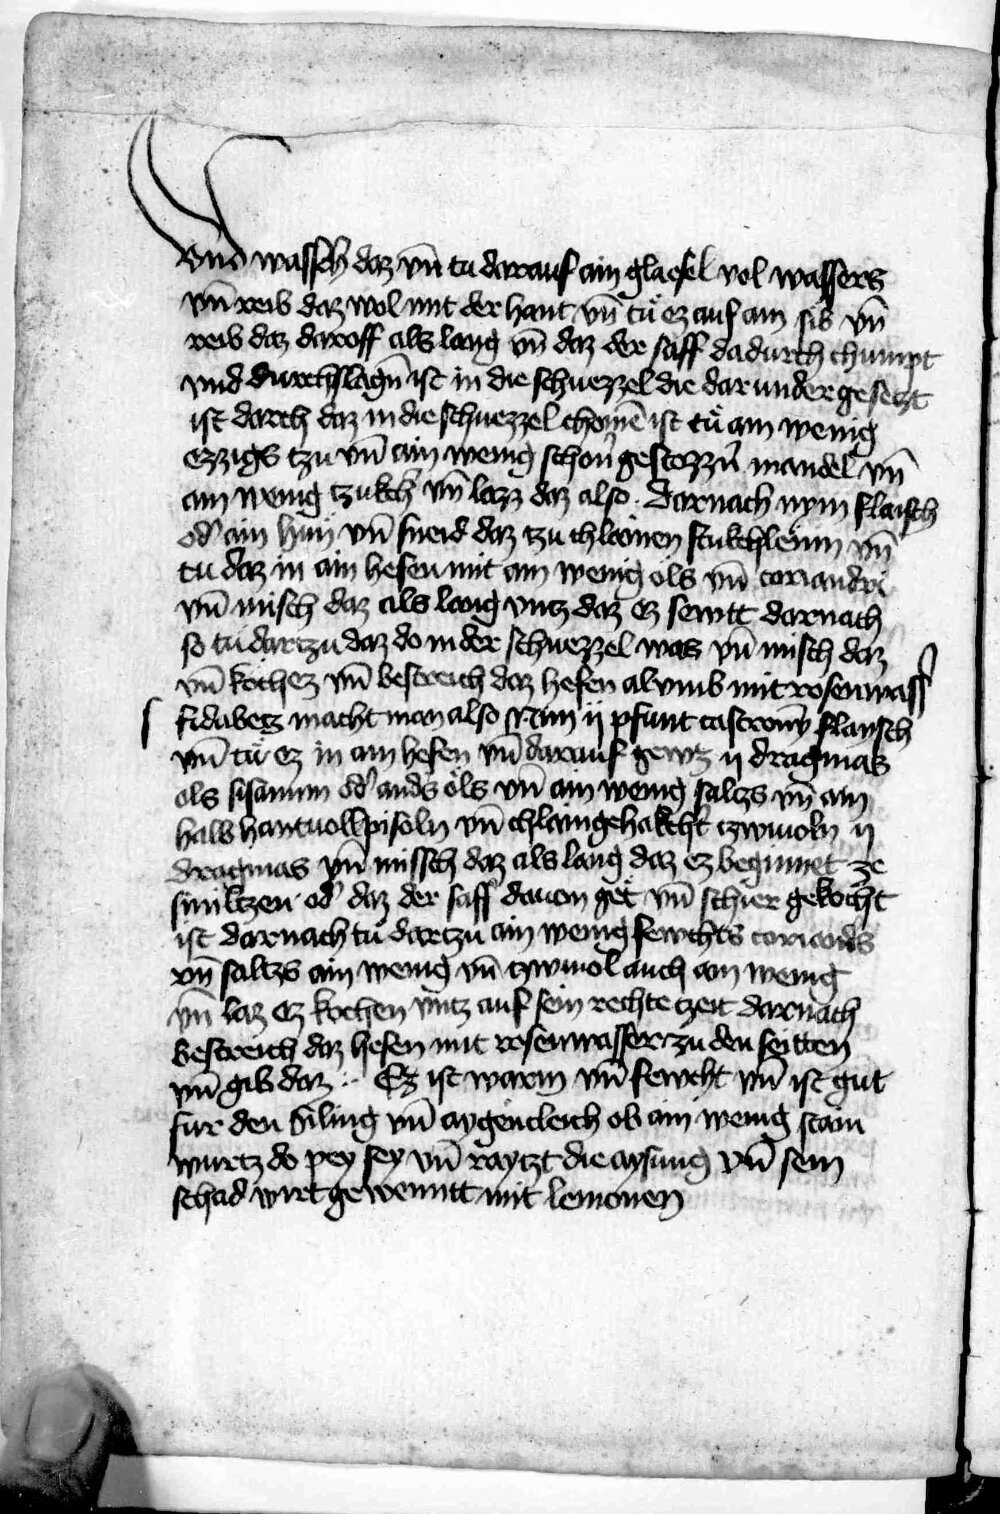 Vnd wassch daz vn̄ tu darauf ain glaesel vol wassers
vn̄ reib daz wol mit der hant vn̄ tuͤ ez auf ain sib vn̄
reib daz daroff als lang vn̄ daz der saff dadurch chumpt
vnd durchslagn̄ ist in die schuezzel die darunder gesetzt
ist darch daz in die schuezzel chomē ist tuͤ ain wenig
ezzigs tzu vn̄ ain wenig schon gestozzn̄ mandel vn̄
ain wenig tzukch vn̄ lazz daz also . Darnach nym flaisch
od' ain hun vn̄ sneid daz tzu chlainen stukchleinn vn̄
tu daz in ain hefen mit ain wenig ols vn̄ coriandri
vn̄ misch daz als lang vntz daz ez sewtt darnach
so tu dartzu daz do in der schuezzel was vn̄ misch daz
vn̄ kochez vn̄ bestreich daz hefen alvmb mit rosenwass'
sidabeg macht man also Nim ij pfunt castrony flaysch
vn̄ tuͤ ez in ain hefen vn̄ darauf gewz ij dragmas
ols sisamim od' ands ols vn̄ ain wenig saltzs vn̄ ain
halb hantuoll pisoln vn̄ chlaingehakcht tzwiuoln ij
dragmas vn̄ missch daz als lang daz ez beginnet ze
smiltzen od' daz der saff dauon get vn̄ schier gekocht
ist darnach tu dartzu ain wenig fewchts coriands
vn̄ saltzs ain wenig vn̄ tzwiuol auch ain wenig
vn̄ laz ez kochen vntz auf sein rechte tzeit darnach
bestreich daz hefen mit rosenwasser tzu den seitten
vn̄ gib daz :- Ez ist warm vn̄ fewcht vn̄ ist gut
fur den siling vn̄ aygencleich ob ain wenig stain
wurtz do pey sey vn̄ raytzt die aysung vn̄ sein
schad wirt gewenntt mit lemonen